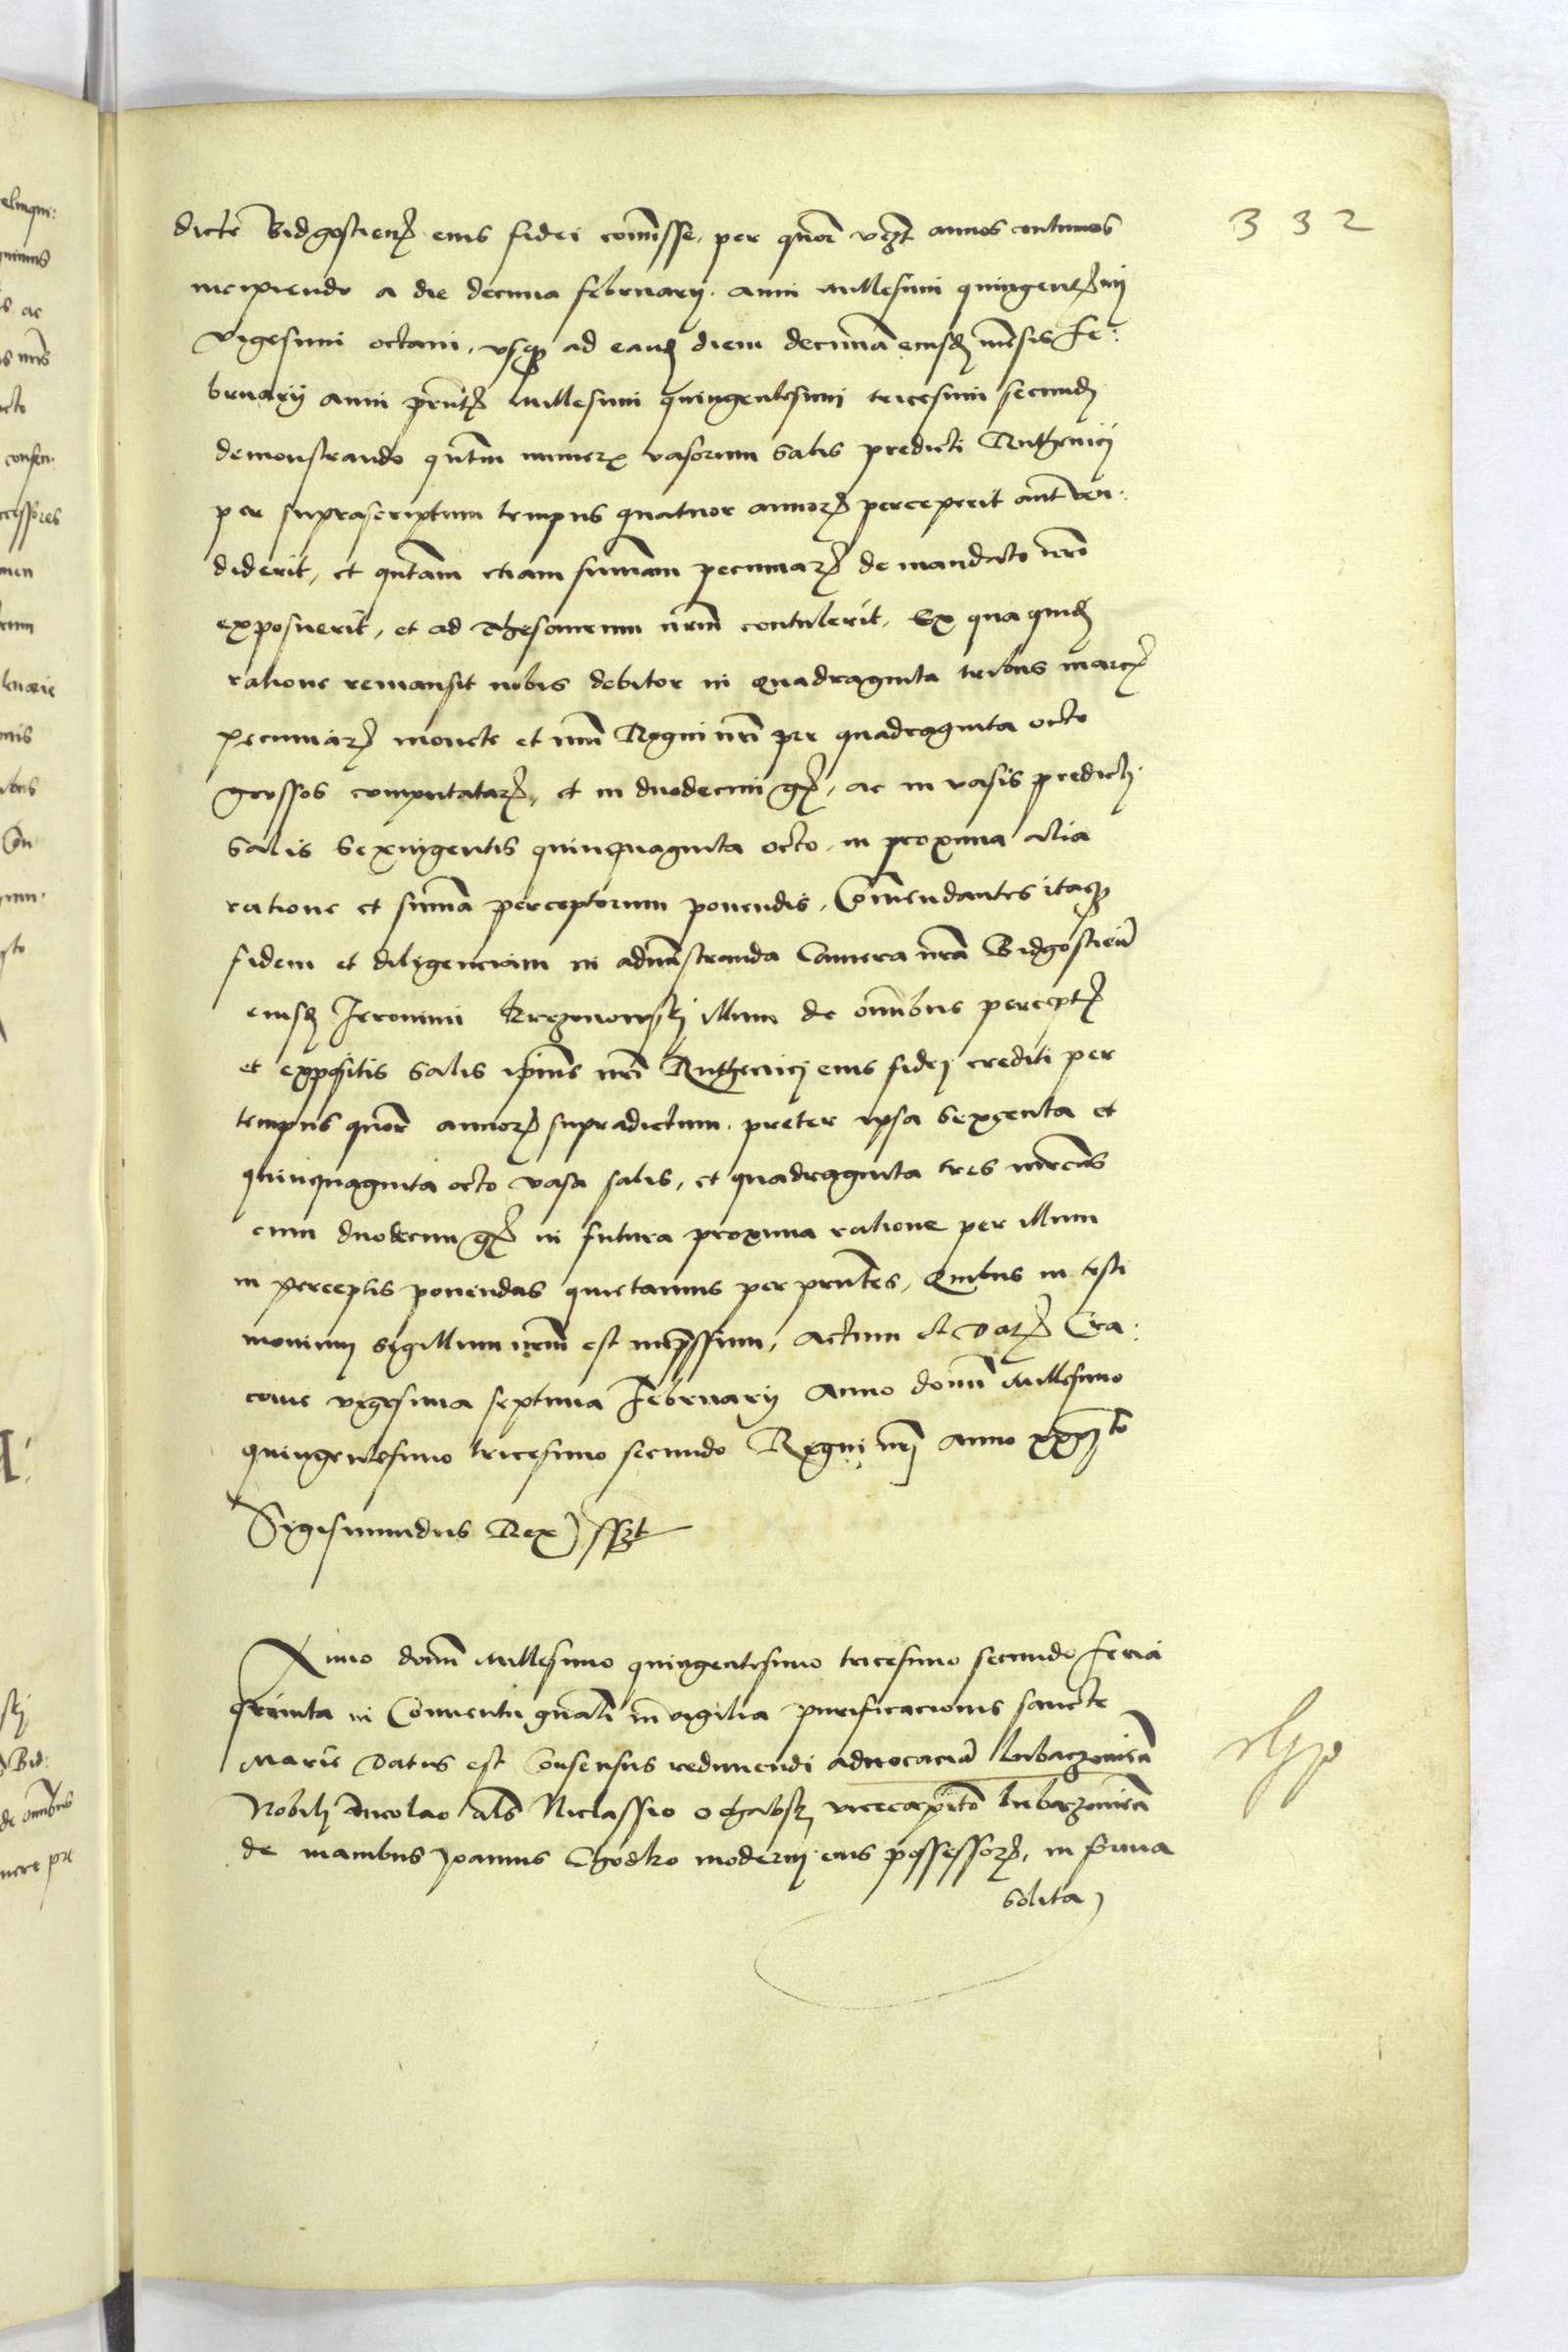 332
dicte Bidgostien eius fidei comisse, per quor vcz annos continuos
incipiendo a die decima februarij. anni millesimi quingentesimi
vigesimi octaui, vsque ad eand diem decimā eiusd mēsis Fe:
bruarij anni prñtis Millesimi quingentesimi tricesimi secundi
demonstrando qñtum numerū vasorum salis predicti Ruthenici
per suprascriptum tempus quatuor annorū perceperit aut ven:
diderit, et qñtam etiam sumam pecuniarū de mandato nrō
exposuerit, et ad Thesaurum nrm contulerit. Ex qua quid
ratione remansit nobis debitor in quadraginta tribus marcis
pecuniarū monete et nūi Regni nrī per quadraginta octo
grossos computatarū, et in duodecim gr, ac in vasis predicti
salis sexingentis quinquaginta octo, in proxima alia
ratione et sumā perceptorum ponendis. Comendantes itaque
fidem et diligenciam in admīstranda Camera nrā Bidgostien
eiusd Jeronimi illum de omībus perceptis
et expositis salis ipsius nrī Ruthenici eius fidej crediti per
tempus quor annorū supradictum. preter ipsa sexcenta et
quinquaginta octo vasa salis, et quadraginta tres mrcas
cum duodecim gr in futura proxima ratione per illum
in perceptis ponendas quietamus per prñtes, Quibus in testi
monium sigillum nrm est impssum, Actum et Dat Cra:
couie vigesima septima Februarij Anno domī Millesimo
quingentesimo tricesimo secundo Regni nrj Anno
Sigismundus Rex sszt
Anno domī Millesimo quingentesimo tricesimo secundo feria
quinta in Conuentu gñali in vigilia purificacionis sancte
Marie Datus est Consensus redimendi aduocaciā
Nobili Nicolao als vicecapito
de manibus Joannis Chodko moderni eius possessor, in forma
solita